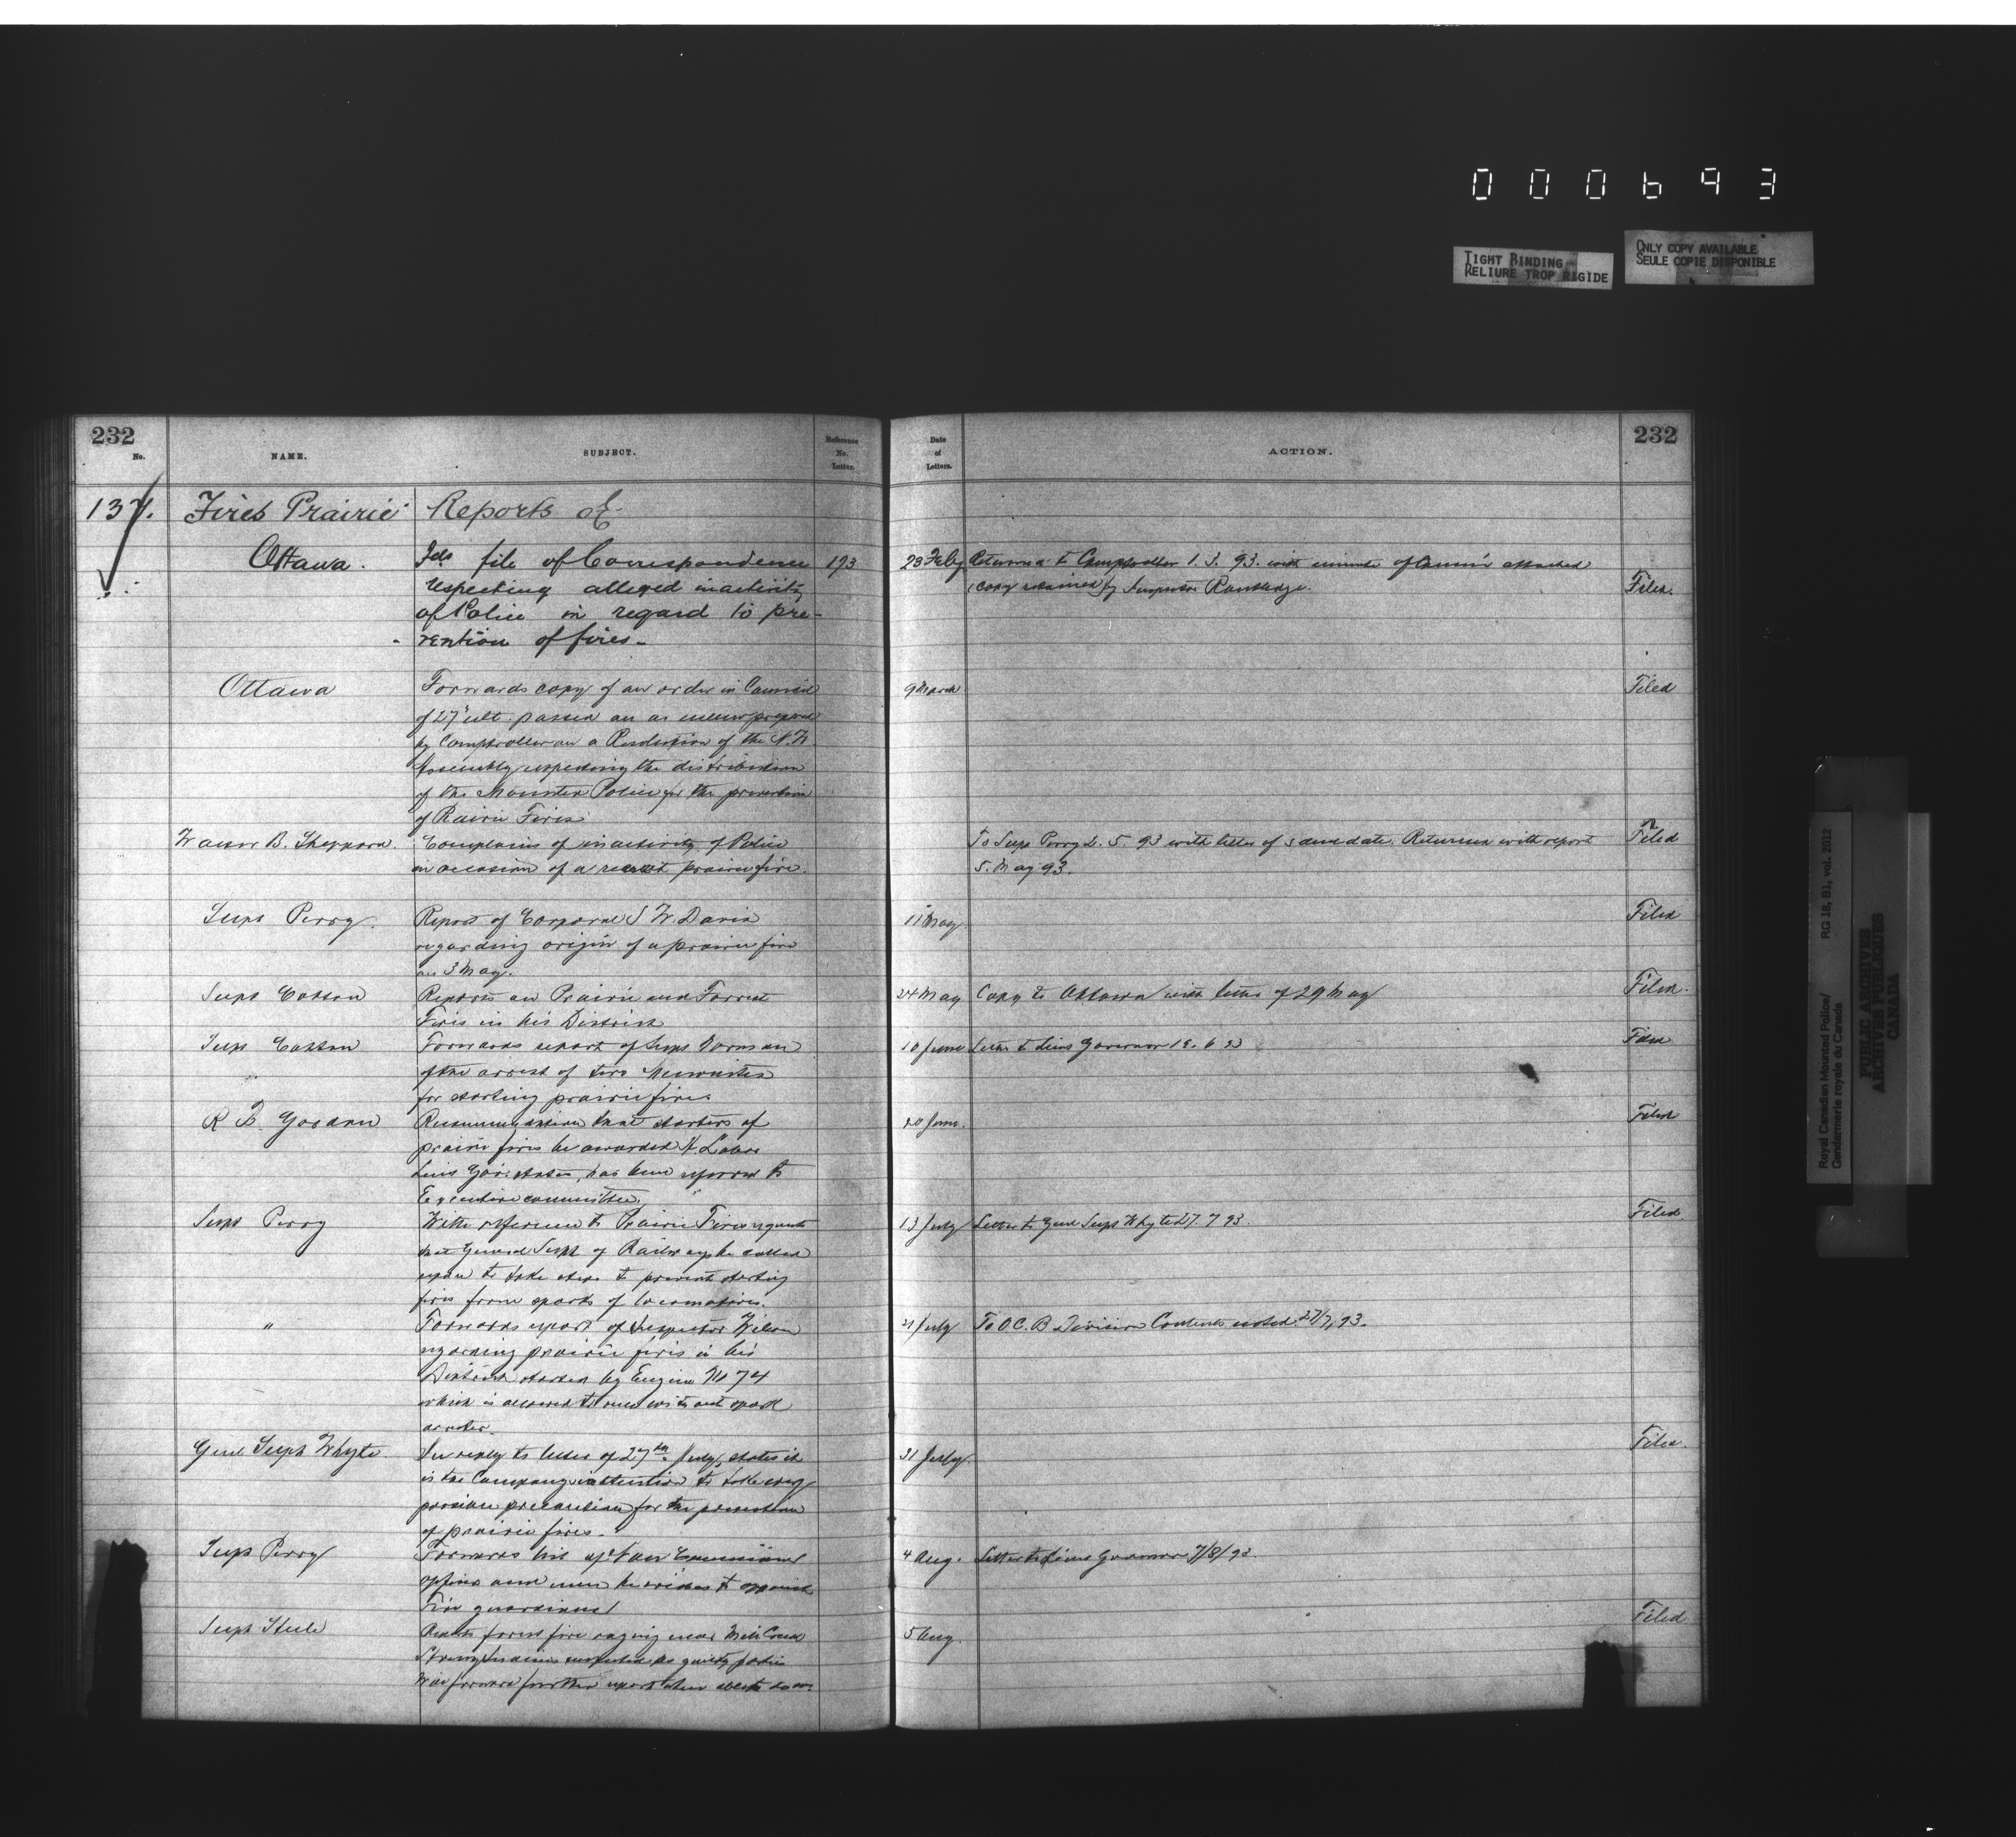 000693
TIGHT BINDING
RELIURE TROP RIGIDE
ONLY COPY AVAILABLE
SEULE COPIE DISPONIBLE
232
No.
NAME.
SUBJECT.
Reference
No.
Letter.
137.
Fires Prairie
Reports of
Ottawa.
Fds file of Correspondence
193
respecting alleged inactivity
of Police in regard to pre-
vention of fires-
Ottawa
Forwards copy of an order in Council
of 27th ult. passed on
by Comptroller on a Resolution of the N.W.
Assembly respecting the distribution
of the Mounted Police for the prevention
of Prairie Fires
B. Sheppard.
Complains of inactivity of Police
on occasion of a recent prairie fire.
Supt Perry.
Report of Corporal S W. Davis
regarding origin of a prairie fire
on 3 May.
Supt Cotton
Reports on Prairie and Forrest
Fires in his District
Supt Cotton
Forwards report of Supt Norman
of the arrest of two
for starting prairie fire.
R B. Gordon
Recommendation that starters of
prairie fires be awarded H Labor
Lieut Gov. states, has been referred to
Executive committee.
Supt Perry
With reference to Prairie Fires requests
that General Supt of Railways be called
upon to take steps to prevent starting
fires from sparks of locomotives.
"
Forwards report of Inspector Wilson
regarding prairie fires in his
District started by Engine No 74
which is allowed to run without spark
arrester.
Genl Supt Whyte.
In reply to letter of 27th July, states it
is the Company's intention to take every
possible precaution for the prevention
of prairie fires.
Supt Perry
Forwards list of Non Commissioned
officers and men he wishes to appoint
Fire guardians
Supt Steele
Reports forest fire raging near Mill Creek
suspected as guilty parties
Will forward further report when able to do so.
Date
of
Letters.
ACTION.
232
23 Feby
Returned to Comptroller 1. 3. 93. with minute of attached
(copy retained) by Inspector Routledge.
Filed.
9 March
Filed
To Supt Perry 2. 5. 93 with letter of same date. Returned with report
5. May 93.
Filed
11 May
Filed
24 May
Copy to Ottawa with letter of 29 May
Filed.
10 June
Letter to Lieut Governor
Filed
20 June.
Filed
13 July
Letter to Genl Supt Whyte 27. 7 93.
Filed
21 July
To O C. B Division Contents noted. 27/7/93.
31 July
Filed.
4 Aug.
Letter to Lieut Governor 7/8/93.
5 Aug.
Filed
Royal Canadian Mounted Police/
Gendarmerie royale du Canada
RG 18, B1, vol. 2012
PUBLIC ARCHIVES
ARCHIVES PUBLIQUES
CANADA